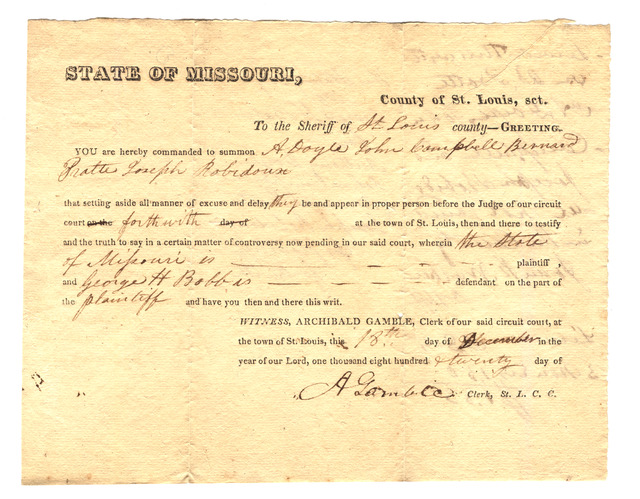 STATE OF MISSOURI,
County of St. Louis, sct.
To the Sheriff of St Louis county—GREETING.
YOU are hereby commanded to summon A. Doyle John Campbell Bernard
Pratte Joseph Robidoux
that setting aside all manner of excuse and delay they be and appear in proper person before the Judge of our circuit
court on the forthwith day of at the town of St. Louis, then and there to testify
and the truth to say in a certain matter of controversy now pending in our said court, wherein the State
of Missouri is — — — — — plaintiff,
and George H Bobb is — — — — defendant on the part of
the plaintiff and have you then and there this writ.
WITNESS, ARCHIBALD GAMBLE, Clerk of our said circuit court, at
the town of St. Louis, this 18th day of December in the
year of our Lord, one thousand eight hundred & twenty day of
A Gamble Clerk, St. L. C. C.